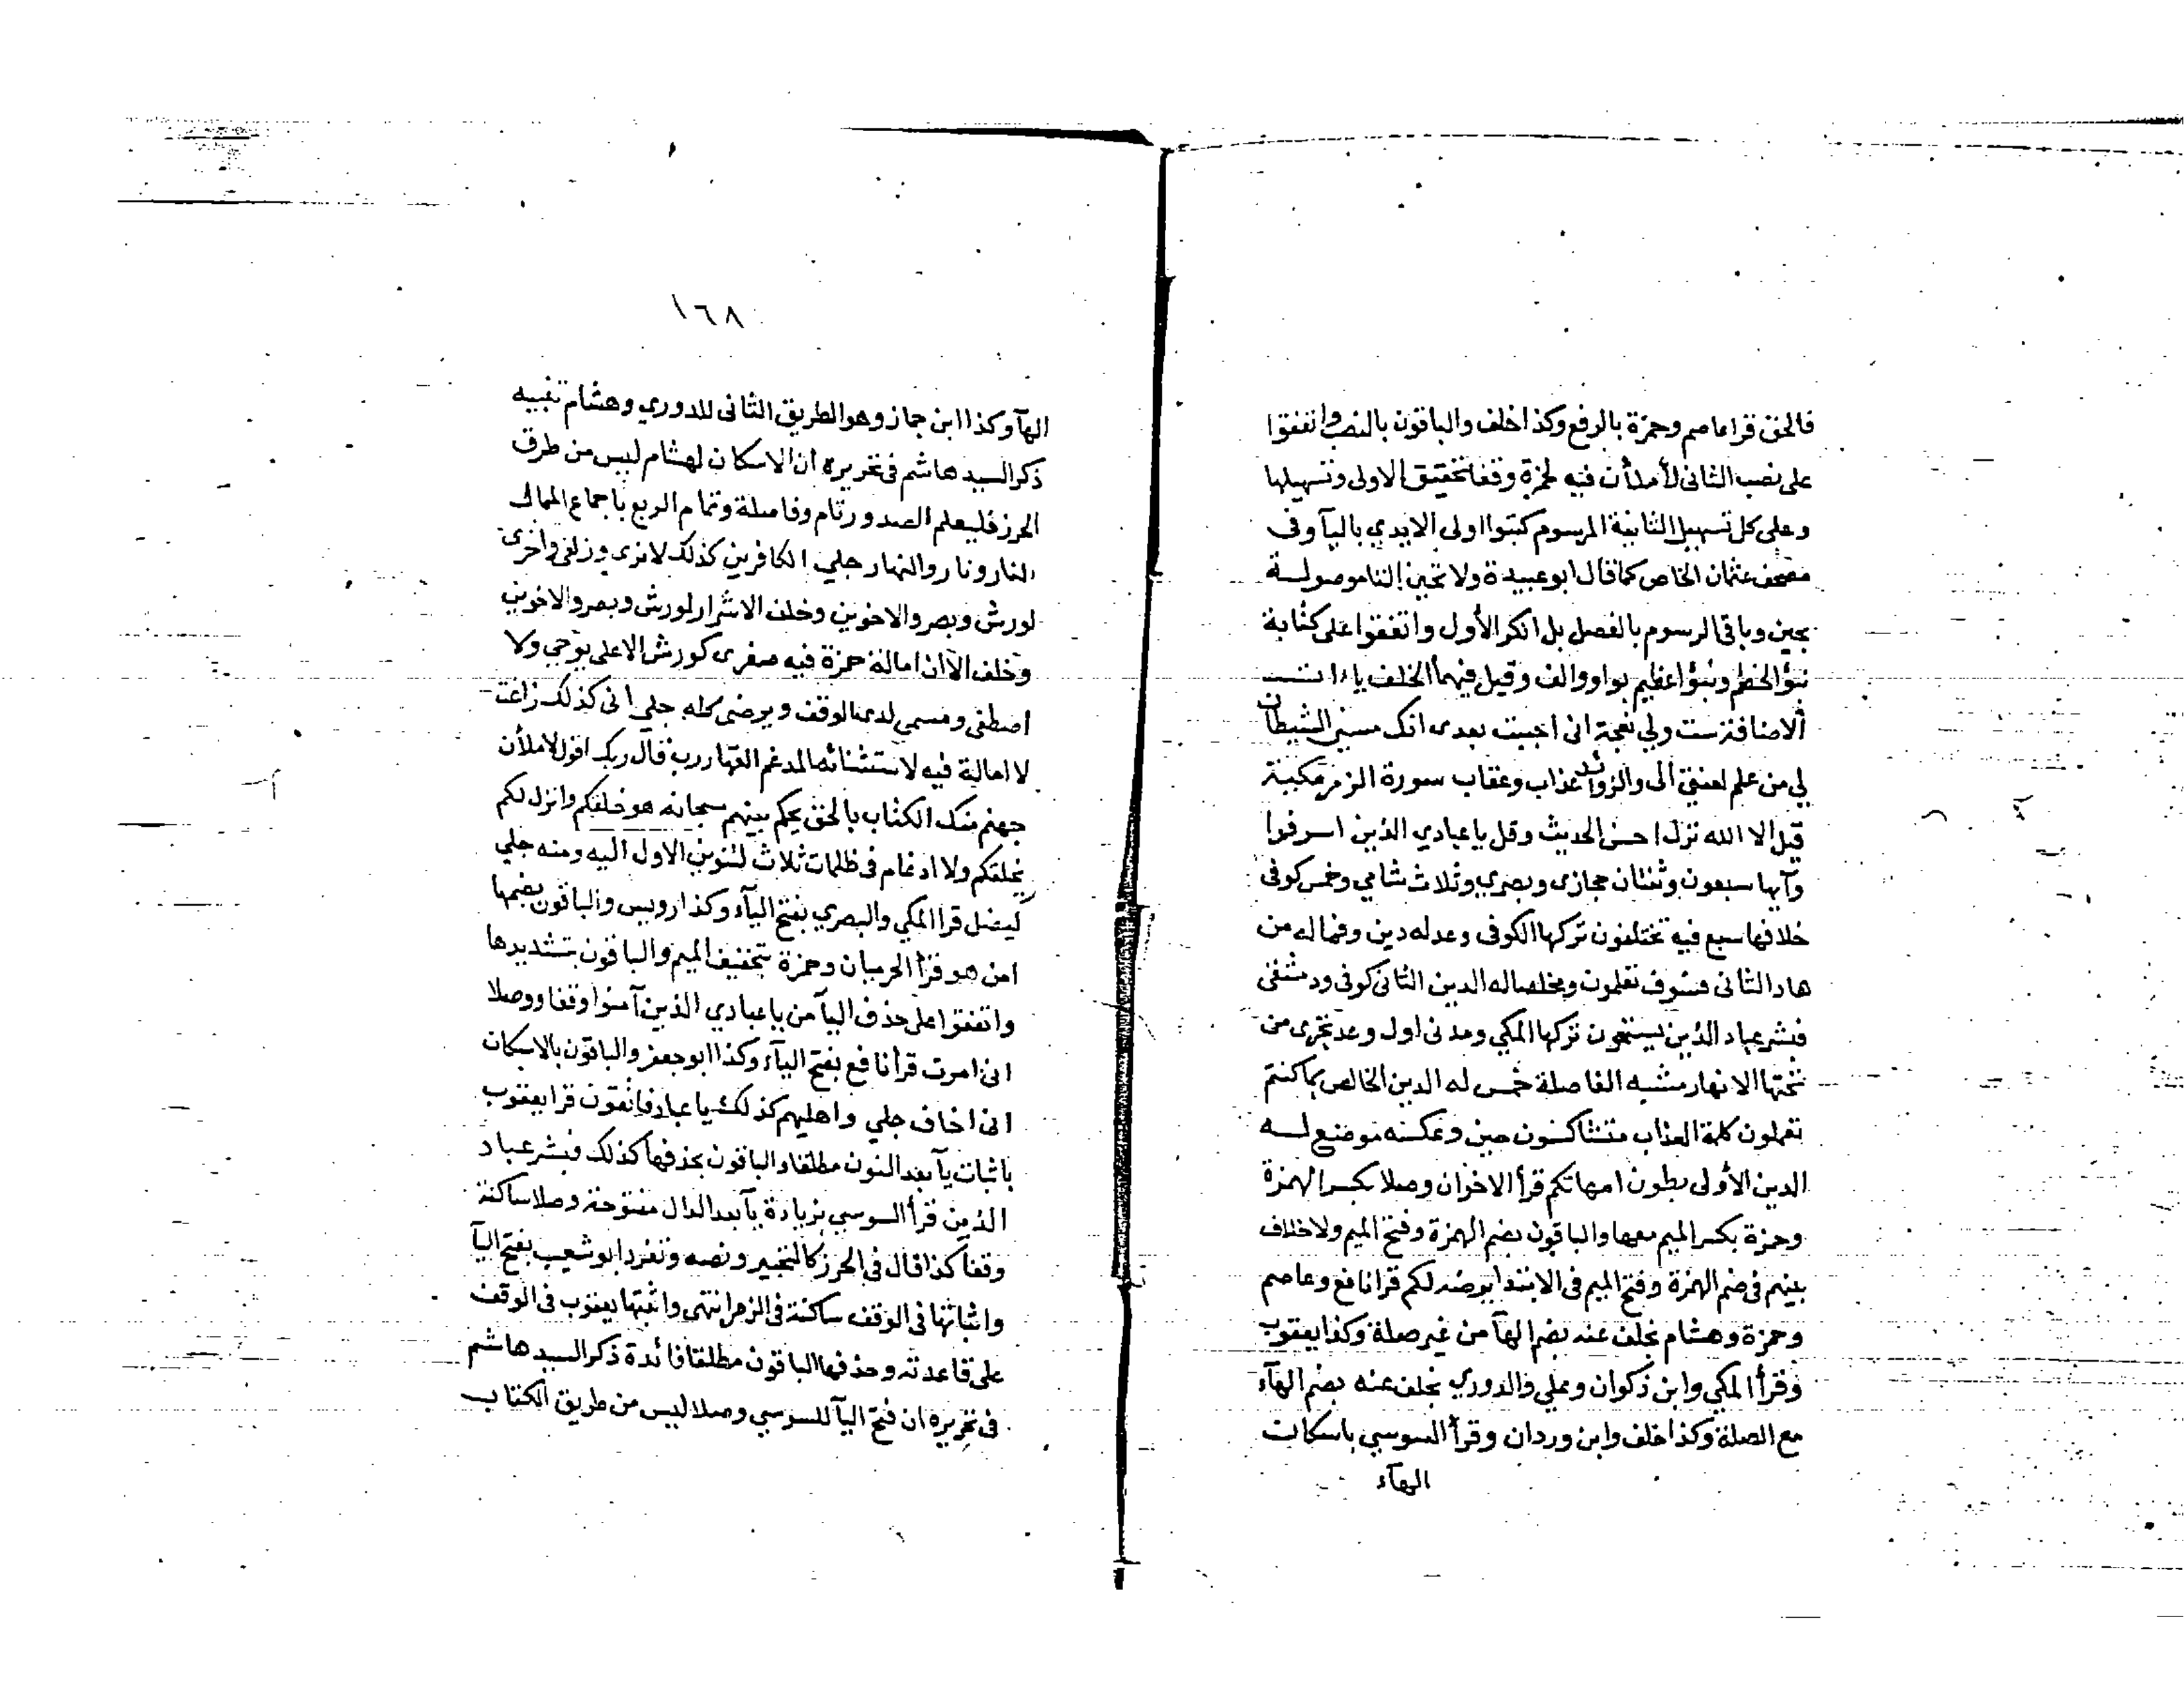 فالحق قرا عاصم وحمزة بالرفع وكذا خلف والباقون بالنصب واتفقوا
على نصب الثانى لأملأن فيه لحمزة وقفا تحقيق الاولى وتسهيلها
وعلى كل تسهيل الثانية المرسوم كتبوا اولى الايدي باليآ وفى
مصحف عثمان الخاص كما قال ابو عبيدة ولا تحين التا موصولـة
بحين وباقى الرسوم بالفصل بل انكر الأول واتفقوا على كتابة
نبؤا الخصم ونبؤا عظيم بواو والف وقيل فيهما الخلف ياءات
الاضافة ست ولي نعجة انى احببت بعدى انك مسني الشيطان
لي من علم لعنتى الى والزوائد عذاب وعقاب سورة الزمر مكية
قيل الا الله نزل احسن الحديث وقل يا عبادي الذين اسرفوا
وآيها سبعون وثنتان حجازى وبصري وثلاث شامي وخمس كوفى
خلافها سبع فيه تختلفون تركها الكوفى وعد له دين وفما له من
هاد الثانى فسوف تعلمون ومخلصا له الدين الثانى كوفى ودمشقى
فبشر عباد الذين يستمعون تركها المكي ومدنى اول وعد تجرى من
تحتها الانهار مشبه الفاصلة خمس له الدين الخالص بما كنتم
تعملون كلمة العذاب متشاكسون حين وعكسه موضع لـه
الدين الأولى بطون امهاتكم قرأ الاخوان وصلا بكسر الهمزة
وحمزة بكسر الميم معها والباقون بضم الهمزة وفتح الميم ولا خلاف
بينهم فى ضم الهمزة وفتح الميم فى الابتدا يرضه لكم قرا نافع وعاصم
وحمزة وهشام بخلف عنه بضم الهآ من غير صلة وكذا يعقوب
وقرأ المكي وابن ذكوان وعلي والدوري بخلف عنه بضم الهآء
مع الصلة وكذا خلف وابن وردان وقرأ السوسي باسكان
الهآء
١٦٨
الهآ وكذا ابن جماز وهو الطريق الثانى للدوري وهشام تنبيه
ذكر السيد هاشم فى تحريره ان الاسكان لهشام ليس من طرق
الحرز فليعلم الصدور تام وفاصلة وتمام الربع باجماع الممال
النار ونار والنهار جلي الكافرين كذلك لا نزى وزلفى واخرى
لورش وبصر والاخوين وخلف الاشرار لورش وبصر والاخوين
وخلف الا ان امالة حمزة فيه صغرى كورش الاعلى يوحي ولا
اصطفى ومسمى لدى الوقف ويرضى كله جلي انى كذلك زاغت
لا امالة فيه لاستثنائه المدغم القهار رب قال ربك اقول لاملأن
جهنم منك الكتاب بالحق يحكم بينهم سبحانه هو خلقكم وانزل لكم
يخلقكم ولا ادغام فى ظلمات ثلاث لتنوين الاول اليه ومنه جلي
ليضل قرا المكي والبصري بفتح اليآء وكذا رويس والباقون بضمها
امن هو قرأ الحرميان وحمزة بتخفيف الميم والباقون بتشديدها
واتفقوا على حذف اليآ من يا عبادي الذين آمنوا وقفا ووصلا
انى امرت قرأ نافع بفتح اليآء وكذا ابو جعفر والباقون بالاسكان
انى اخاف جلي واهليهم كذلك يا عباد فاتقون قرا يعقوب
باثبات يآ بعد النون مطلقا والباقون بحذفها كذلك فبشر عباد
الذين قرأ السوسي بزيادة يآ بعد الدال مفتوحة وصلا ساكنة
وقفا كذا قال فى الحرز كالتحبير ونصه وتفرد ابو شعيب بفتح اليآ
واثباتها فى الوقف ساكنة فى الزمر انتهى واثبتها يعقوب فى الوقف
على قاعدته وحذفها الباقون مطلقا فائدة ذكر السيد هاشم
فى تحريره ان فتح اليآ للسوسي وصلا ليس من طريق الكتاب